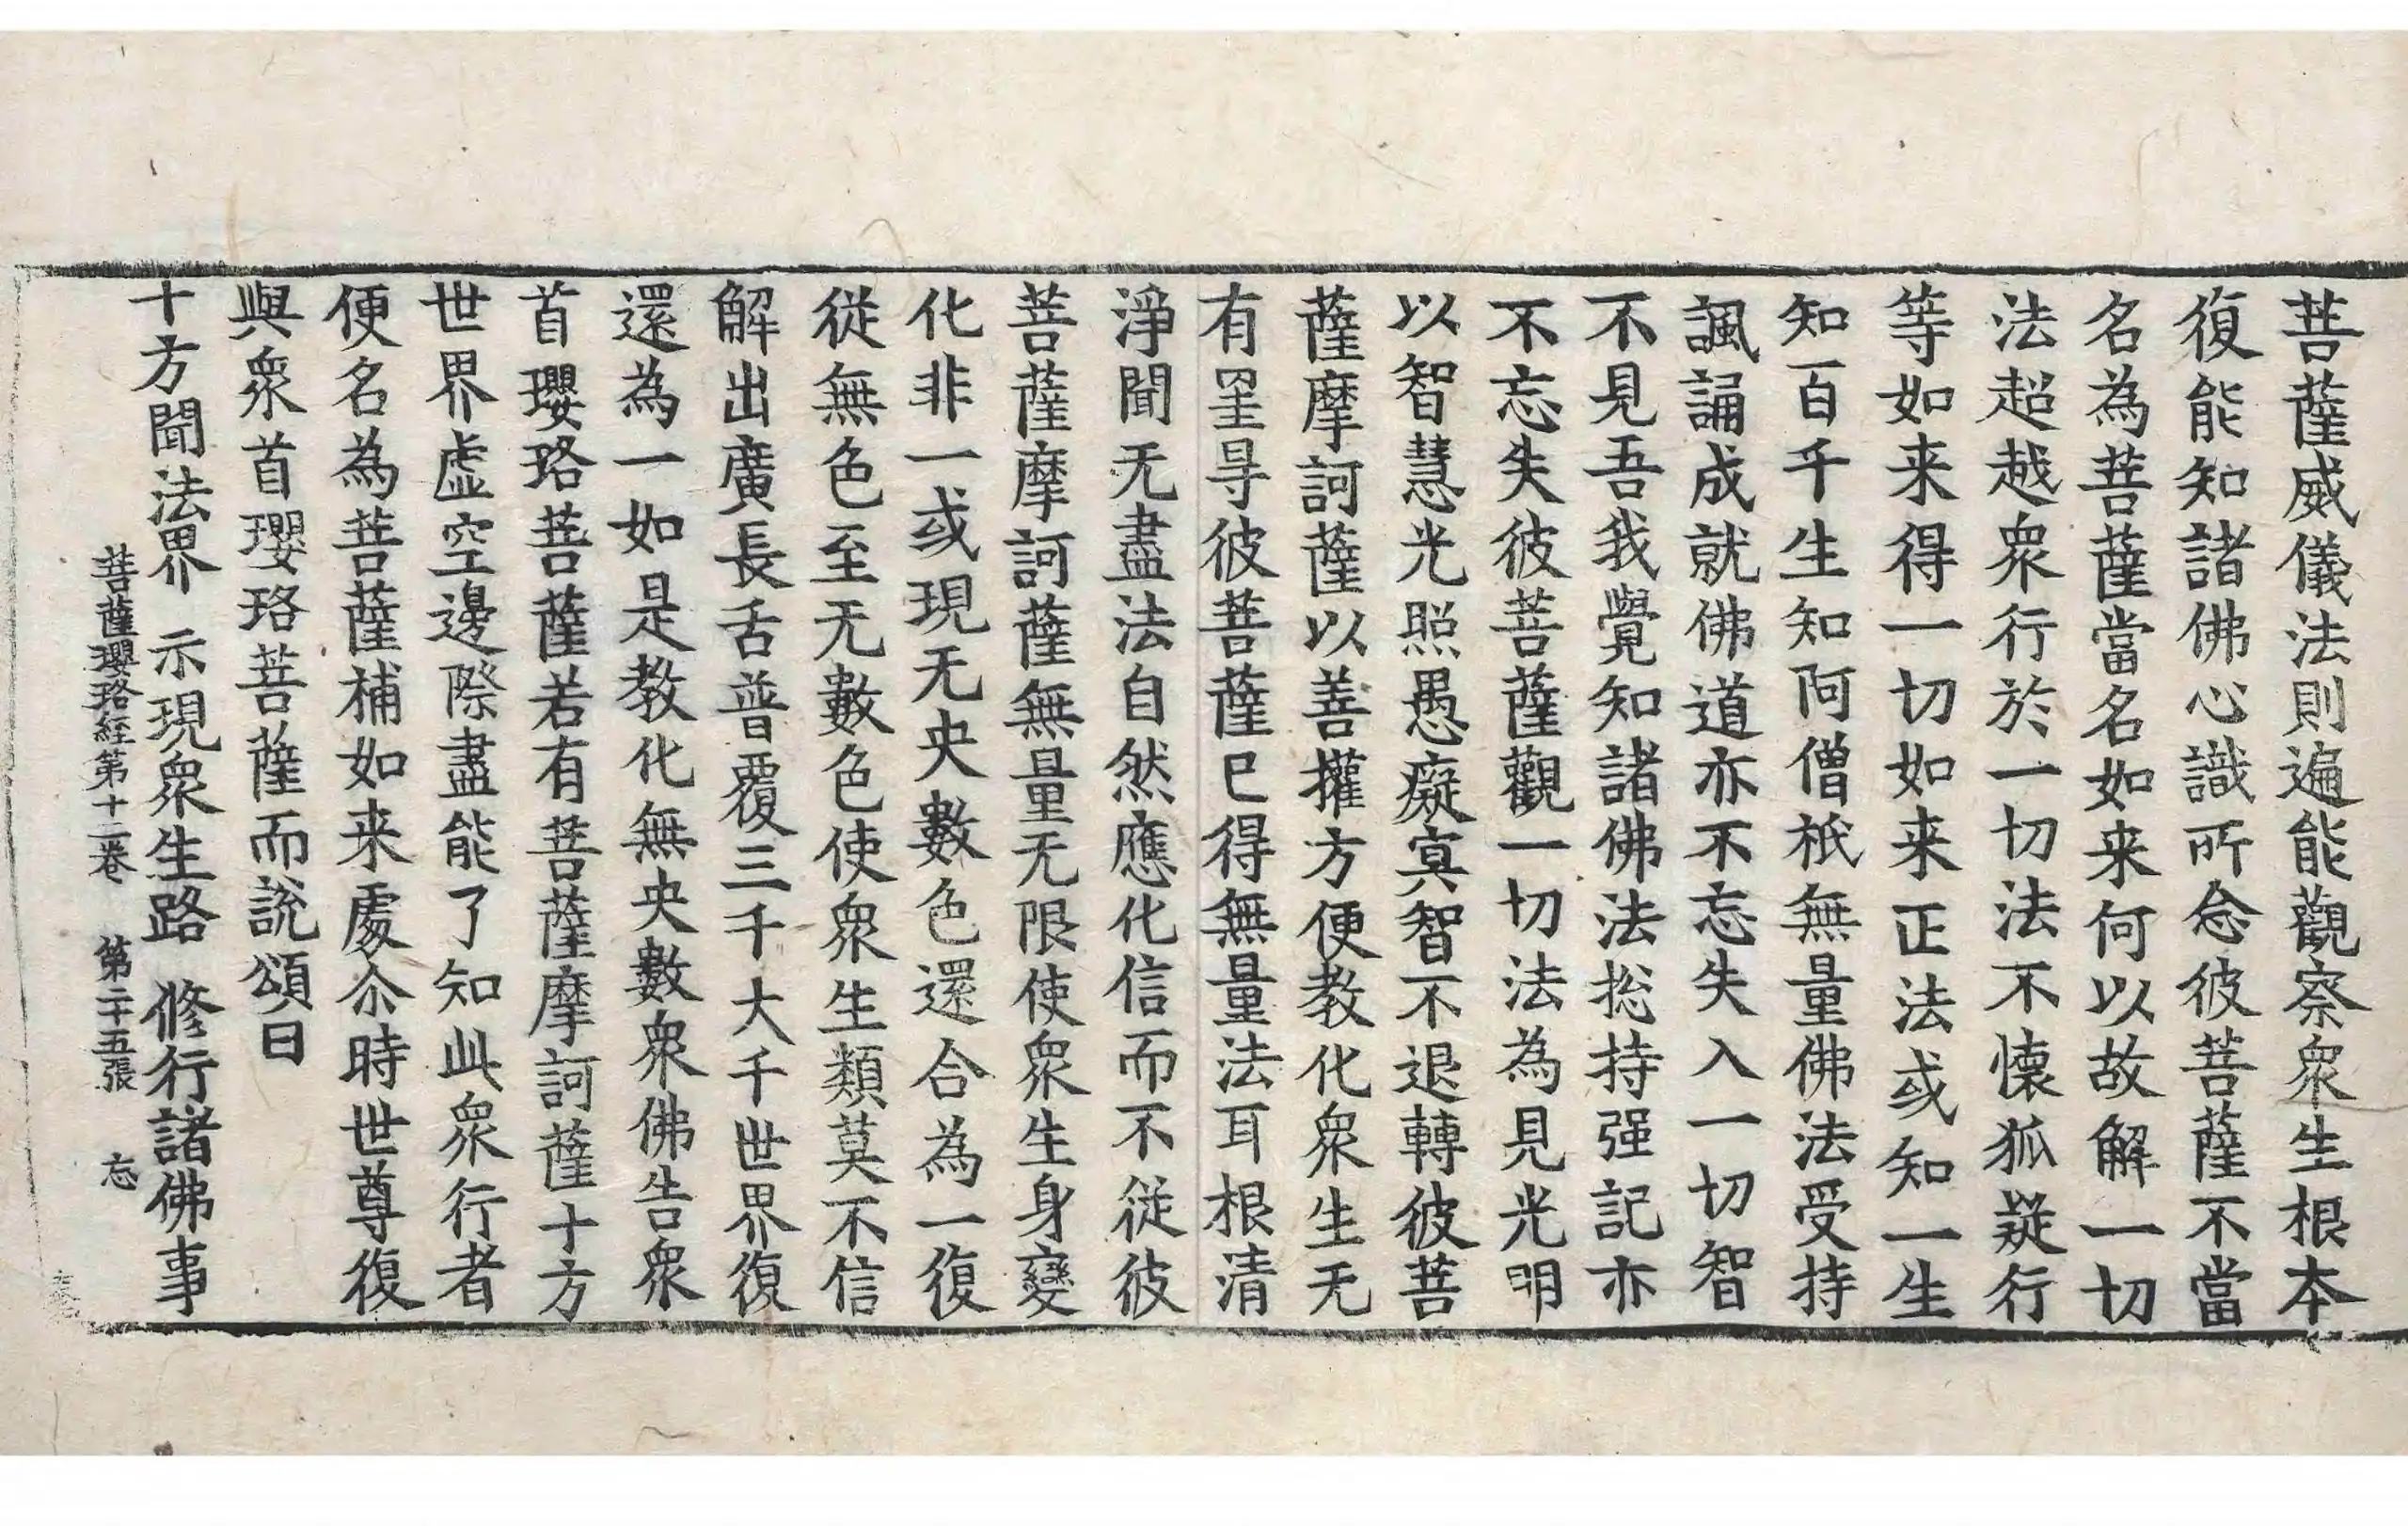 菩薩威儀法則遍能觀察衆生根本
復能知諸佛心識所念彼菩薩不當
名為菩薩當名如来何以故解一切
法超越衆行於一切法不懷狐疑行
等如来得一切如来正法或知一生
知百千生知阿僧祇無量佛法受持
諷誦成就佛道亦不忘失入一切智
不見吾我覺知諸佛法捴持强記亦
不忘失彼菩薩觀一切法為見光明
以智慧光照愚癡冥智不退轉彼菩
薩摩訶薩以善權方便教化衆生无
有罣㝵彼菩薩已得無量法耳根清
淨聞无盡法自然應化信而不從彼
菩薩摩訶薩無量无限使衆生身變
化非一或現无央數色還合為一復
從無色至无數色使衆生類莫不信
解出廣長舌普覆三千大千世界復
還為一如是教化無央數衆佛告衆
首瓔珞菩薩若有菩薩摩訶薩十方
世界虛空邊際盡能了知此衆行者
便名為菩薩補如来處尒時世尊復
與衆首瓔珞菩薩而說頌曰
十方聞法界 示現衆生路 修行諸佛事
菩薩瓔珞經第十二卷 第二十五張 忘